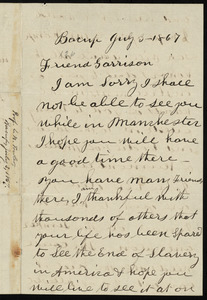 Bacup July 5-1867
Friend Garrison
I am Sorry I shall
not be able to see you
while in Manchester
I hope you will have
a good time there—
you have many friends
there, I am thankful with
thousands of others that
your life has been Spared
to See the End of Slavery
in America & hope you
will live to see it at on